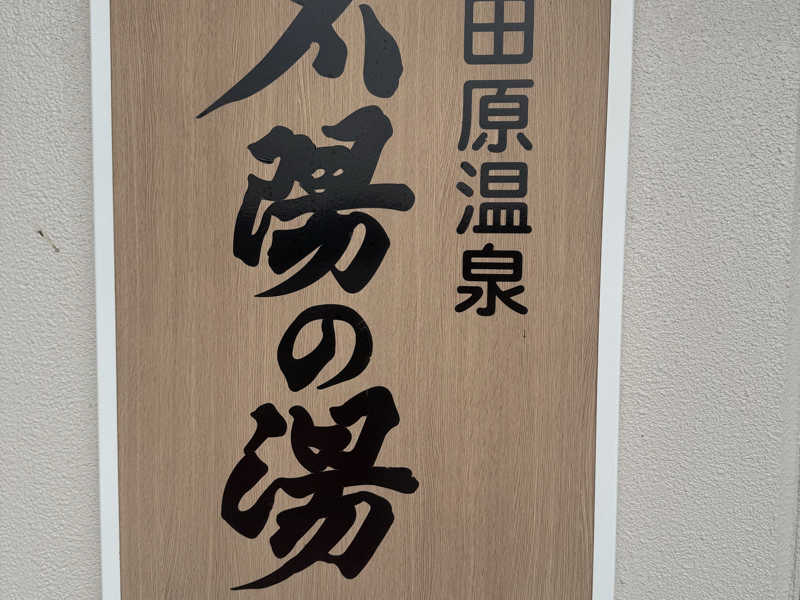 田原温泉
太陽の湯